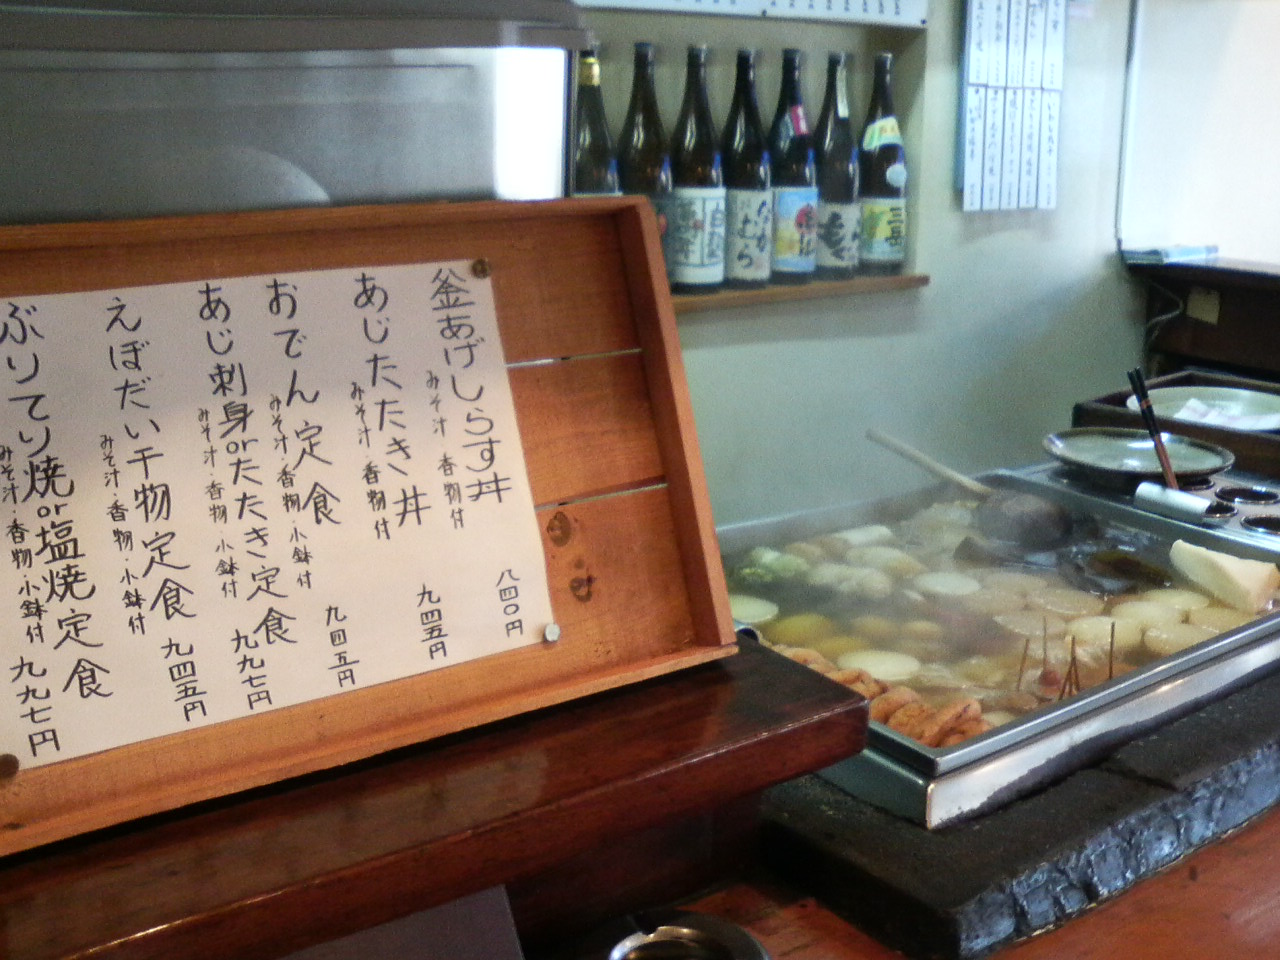 釜あげしらす丼
みそ汁 香物付
八四〇円
あじたたき丼
みそ汁・香物付
九四五円
おでん定食
みそ汁・香物・小鉢付
九四五円
あじ刺身orたたき定食
みそ汁 香物 小鉢付
九九七円
えぼだい干物定食
みそ汁・香物・小鉢付
九四五円
ぶりてり焼or塩焼定食
みそ汁・香物・小鉢付
九九七円
なかむら
三岳